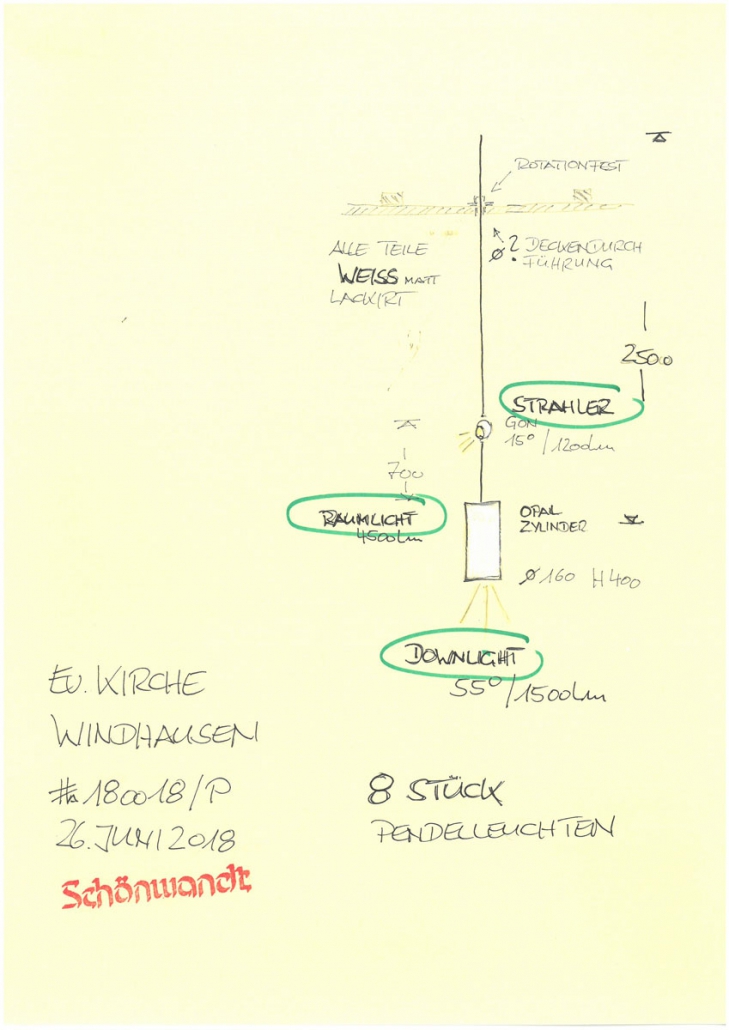 ROTATIONFEST
ALLE TEILE
WEISS MATT
LACKIRT
Ø ? DECKENDURCH
FÜHRUNG
2500
STRAHLER
GON
15° / 1200Lm
700
RAUMLICHT
4500Lm
OPAL
ZYLINDER
Ø 160 H400
DOWNLIGHT
55° / 1500Lm
EV. KIRCHE
WINDHAUSEN
#180018/P
26. JUNI 2018
Schönwandt
8 STÜCK
PENDELLEUCHTEN